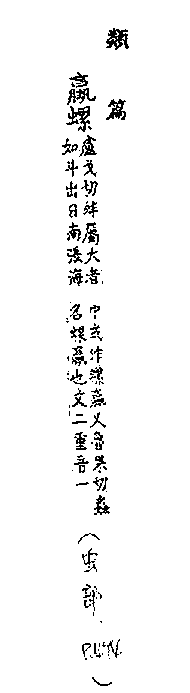 類篇
蠃螺
盧戈切蚌屬大者
如斗出日南漲海
中或作螺蠃又魯果切蟲
名蜾蠃也文二重音一
(虫部.